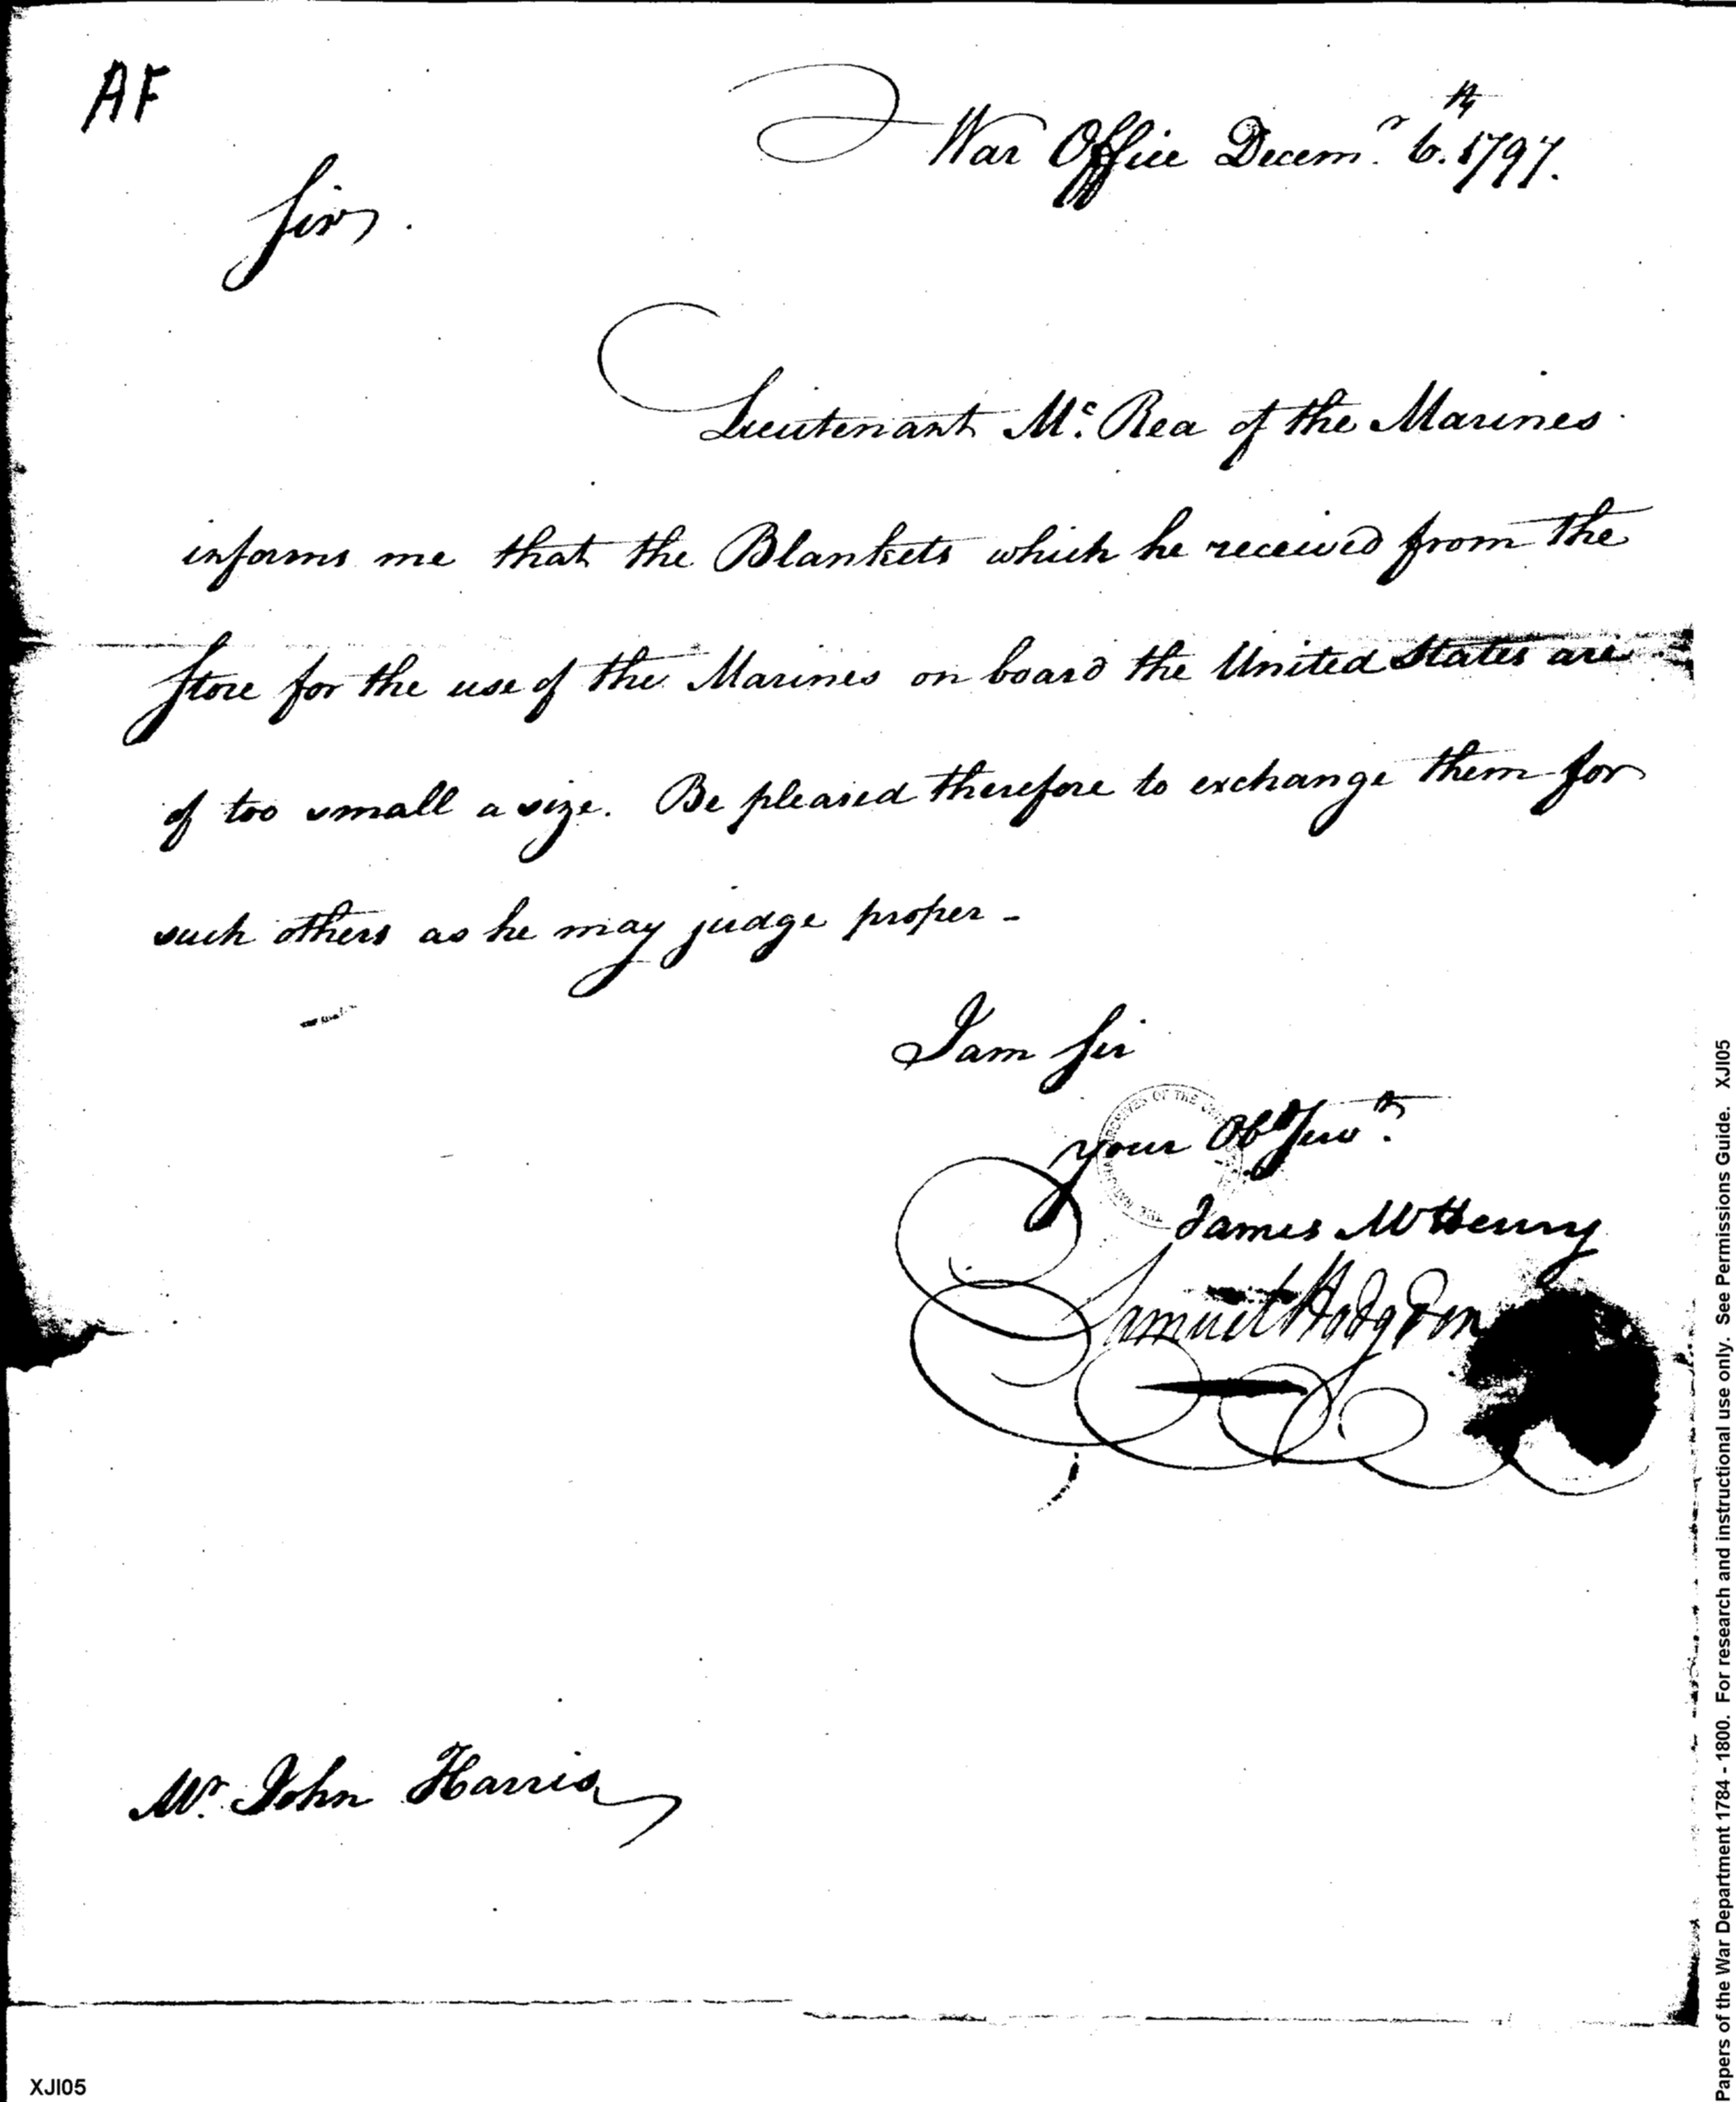 AF
War Office Decem.r 6.th 1797.
Sir.
Lieutenant Mc. Rea of the Marines
informs me that the Blankets which he received from the
Store for the use of the Marines on board the United States are
of too small a size. Be pleased therefore to exchange them for
such others as he may judge proper -
I am Sir
your Obt Servt.
James McHenry
Samuel Hodgdon
Mr. John Harris
XJI05
Papers of the War Department 1784 - 1800. For research and instructional use only. See Permissions Guide. XJI05